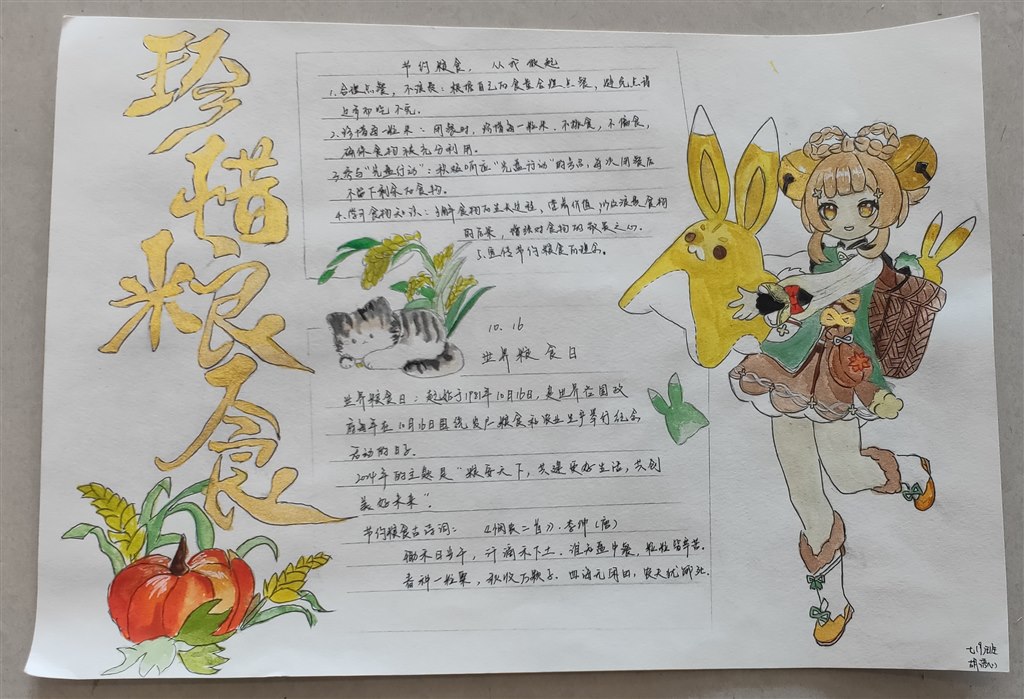 珍惜粮食
节约粮食，从我做起
1.合理点餐，不浪费：根据自己的食量合理点餐，避免点得
过多而吃不完。
2.珍惜每一粒米：用餐时，珍惜每一粒米，不挑食，不偏食，
确保食物被充分利用。
3.参与"光盘行动"：积极响应"光盘行动"的号召，每次用餐后
不留下剩余的食物。
4.学习食物知识：了解食物的生长过程，营养价值，以及浪费食物
的后果，增强对食物的敬畏之心。
5.宣传节约粮食的理念。
10.16
世界粮食日
世界粮食日：起始于1981年10月16日，是世界各国政
府每年在10月16日围绕发展粮食和农业生产举行纪念
活动的日子。
2024年的主题是"粮安天下，共建更好生活，共创
美好未来"。
节约粮食古诗词：《悯农二首》李绅（唐）
锄禾日当午，汗滴禾下土。谁知盘中餐，粒粒皆辛苦。
春种一粒粟，秋收万颗子。四海无闲田，农夫犹饿死。
七19班